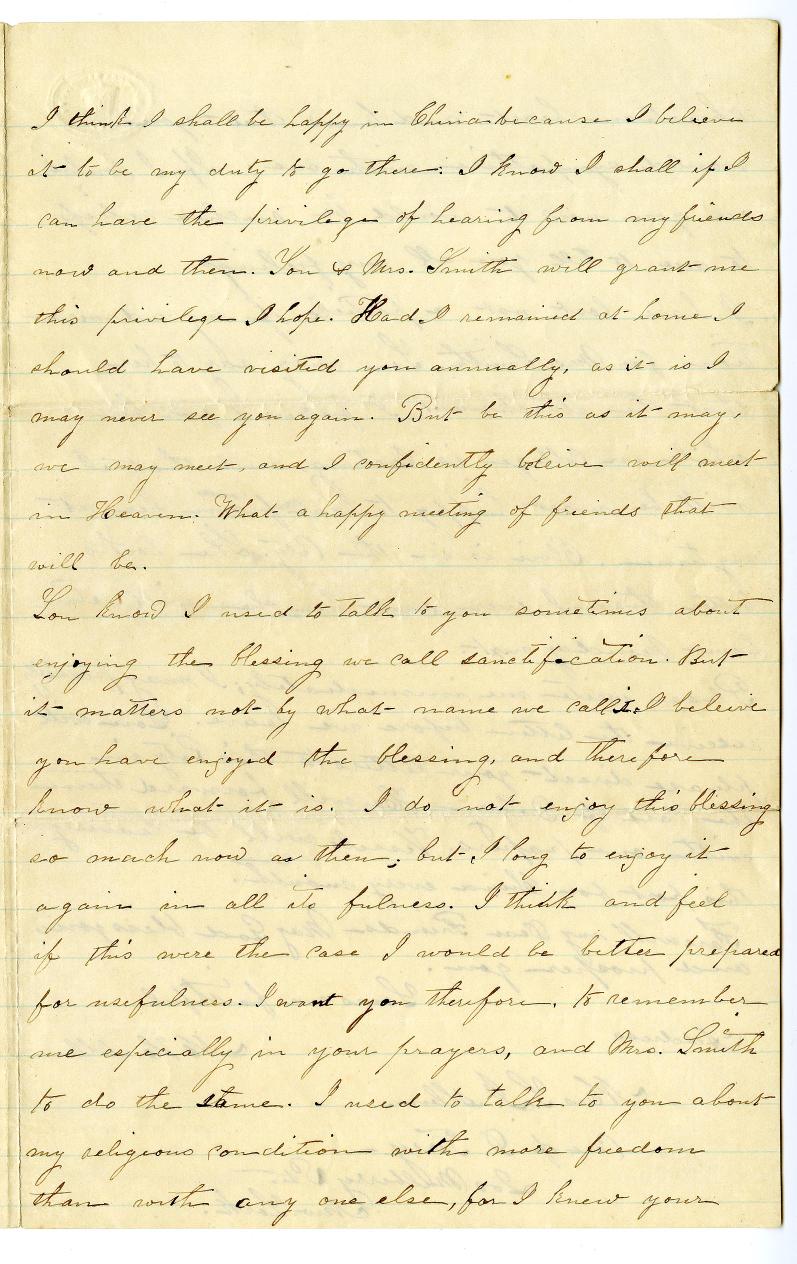 I think I shall be happy in China because I believe
it to be my duty to go there: I know I shall if I
can have the privilege of hearing from my friends
now and then. You & Mrs. Smith will grant me
this privilege I hope. Had I remained at home I
should have visited you annually, as it is I
may never see you again. But be this as it may,
we may meet, and I confidently beleive will meet
in Heaven. What a happy meeting of friends that
will be.
You know I used to talk to you sometimes about
enjoying the blessing we call sanctification. But
it matters not by what name we call it. I beleive
you have enjoyed the blessing, and therefore
know what it is. I do not enjoy this blessing
so much now as then; but I long to enjoy it
again in all its fulness. I think and feel
if this were the case I would be better prepared
for usefulness. I want you therefore, to remember
me especially in your prayers, and Mrs. Smith
to do the same. I used to talk to you about
my religious condition with more freedom
than with any one else, for I knew your